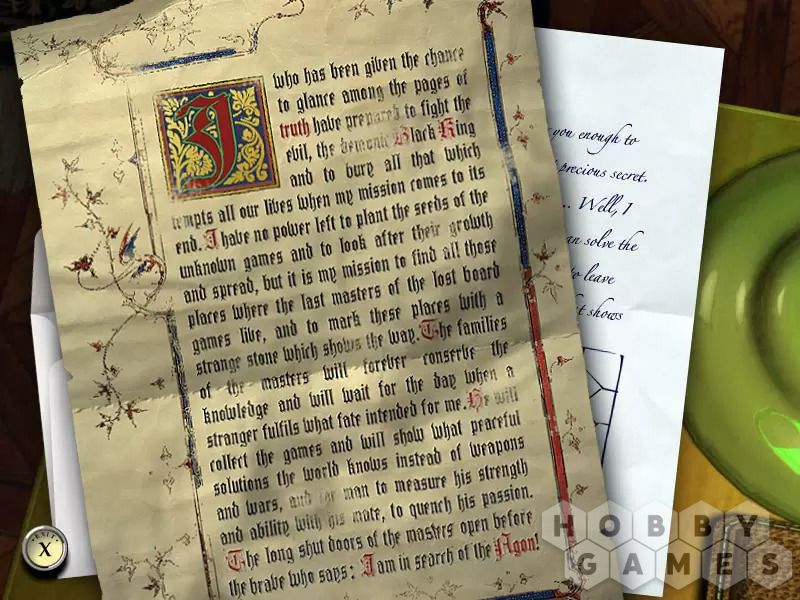 I who has been given the chance
to glance among the pages of
truth have prepared to fight the
evil, the demonic Black King
and to bury all that which
tempts all our lives when my mission comes to its
end. I have no power left to plant the seeds of the
unknown games and to look after their growth
and spread, but it is my mission to find all those
places where the last masters of the lost board
games live, and to mark these places with a
strange stone which shows the way. The families
of the masters will forever conserve the
knowledge and will wait for the day when a
stranger fulfils what fate intended for me. He will
collect the games and will show what peaceful
solutions the world knows instead of weapons
and wars, and for man to measure his strength
and ability with his mate, to quench his passion.
The long shut doors of the masters open before
the brave who says: I am in search of the Agon!
you enough to
precious secret.
... Well, I
can solve the
to leave
shows
X
HOBBY
GAMES